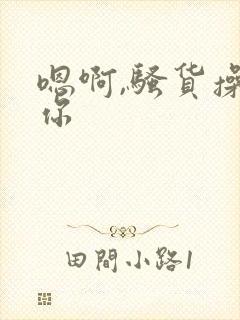 嗯啊,骚货操
你
田間小路1